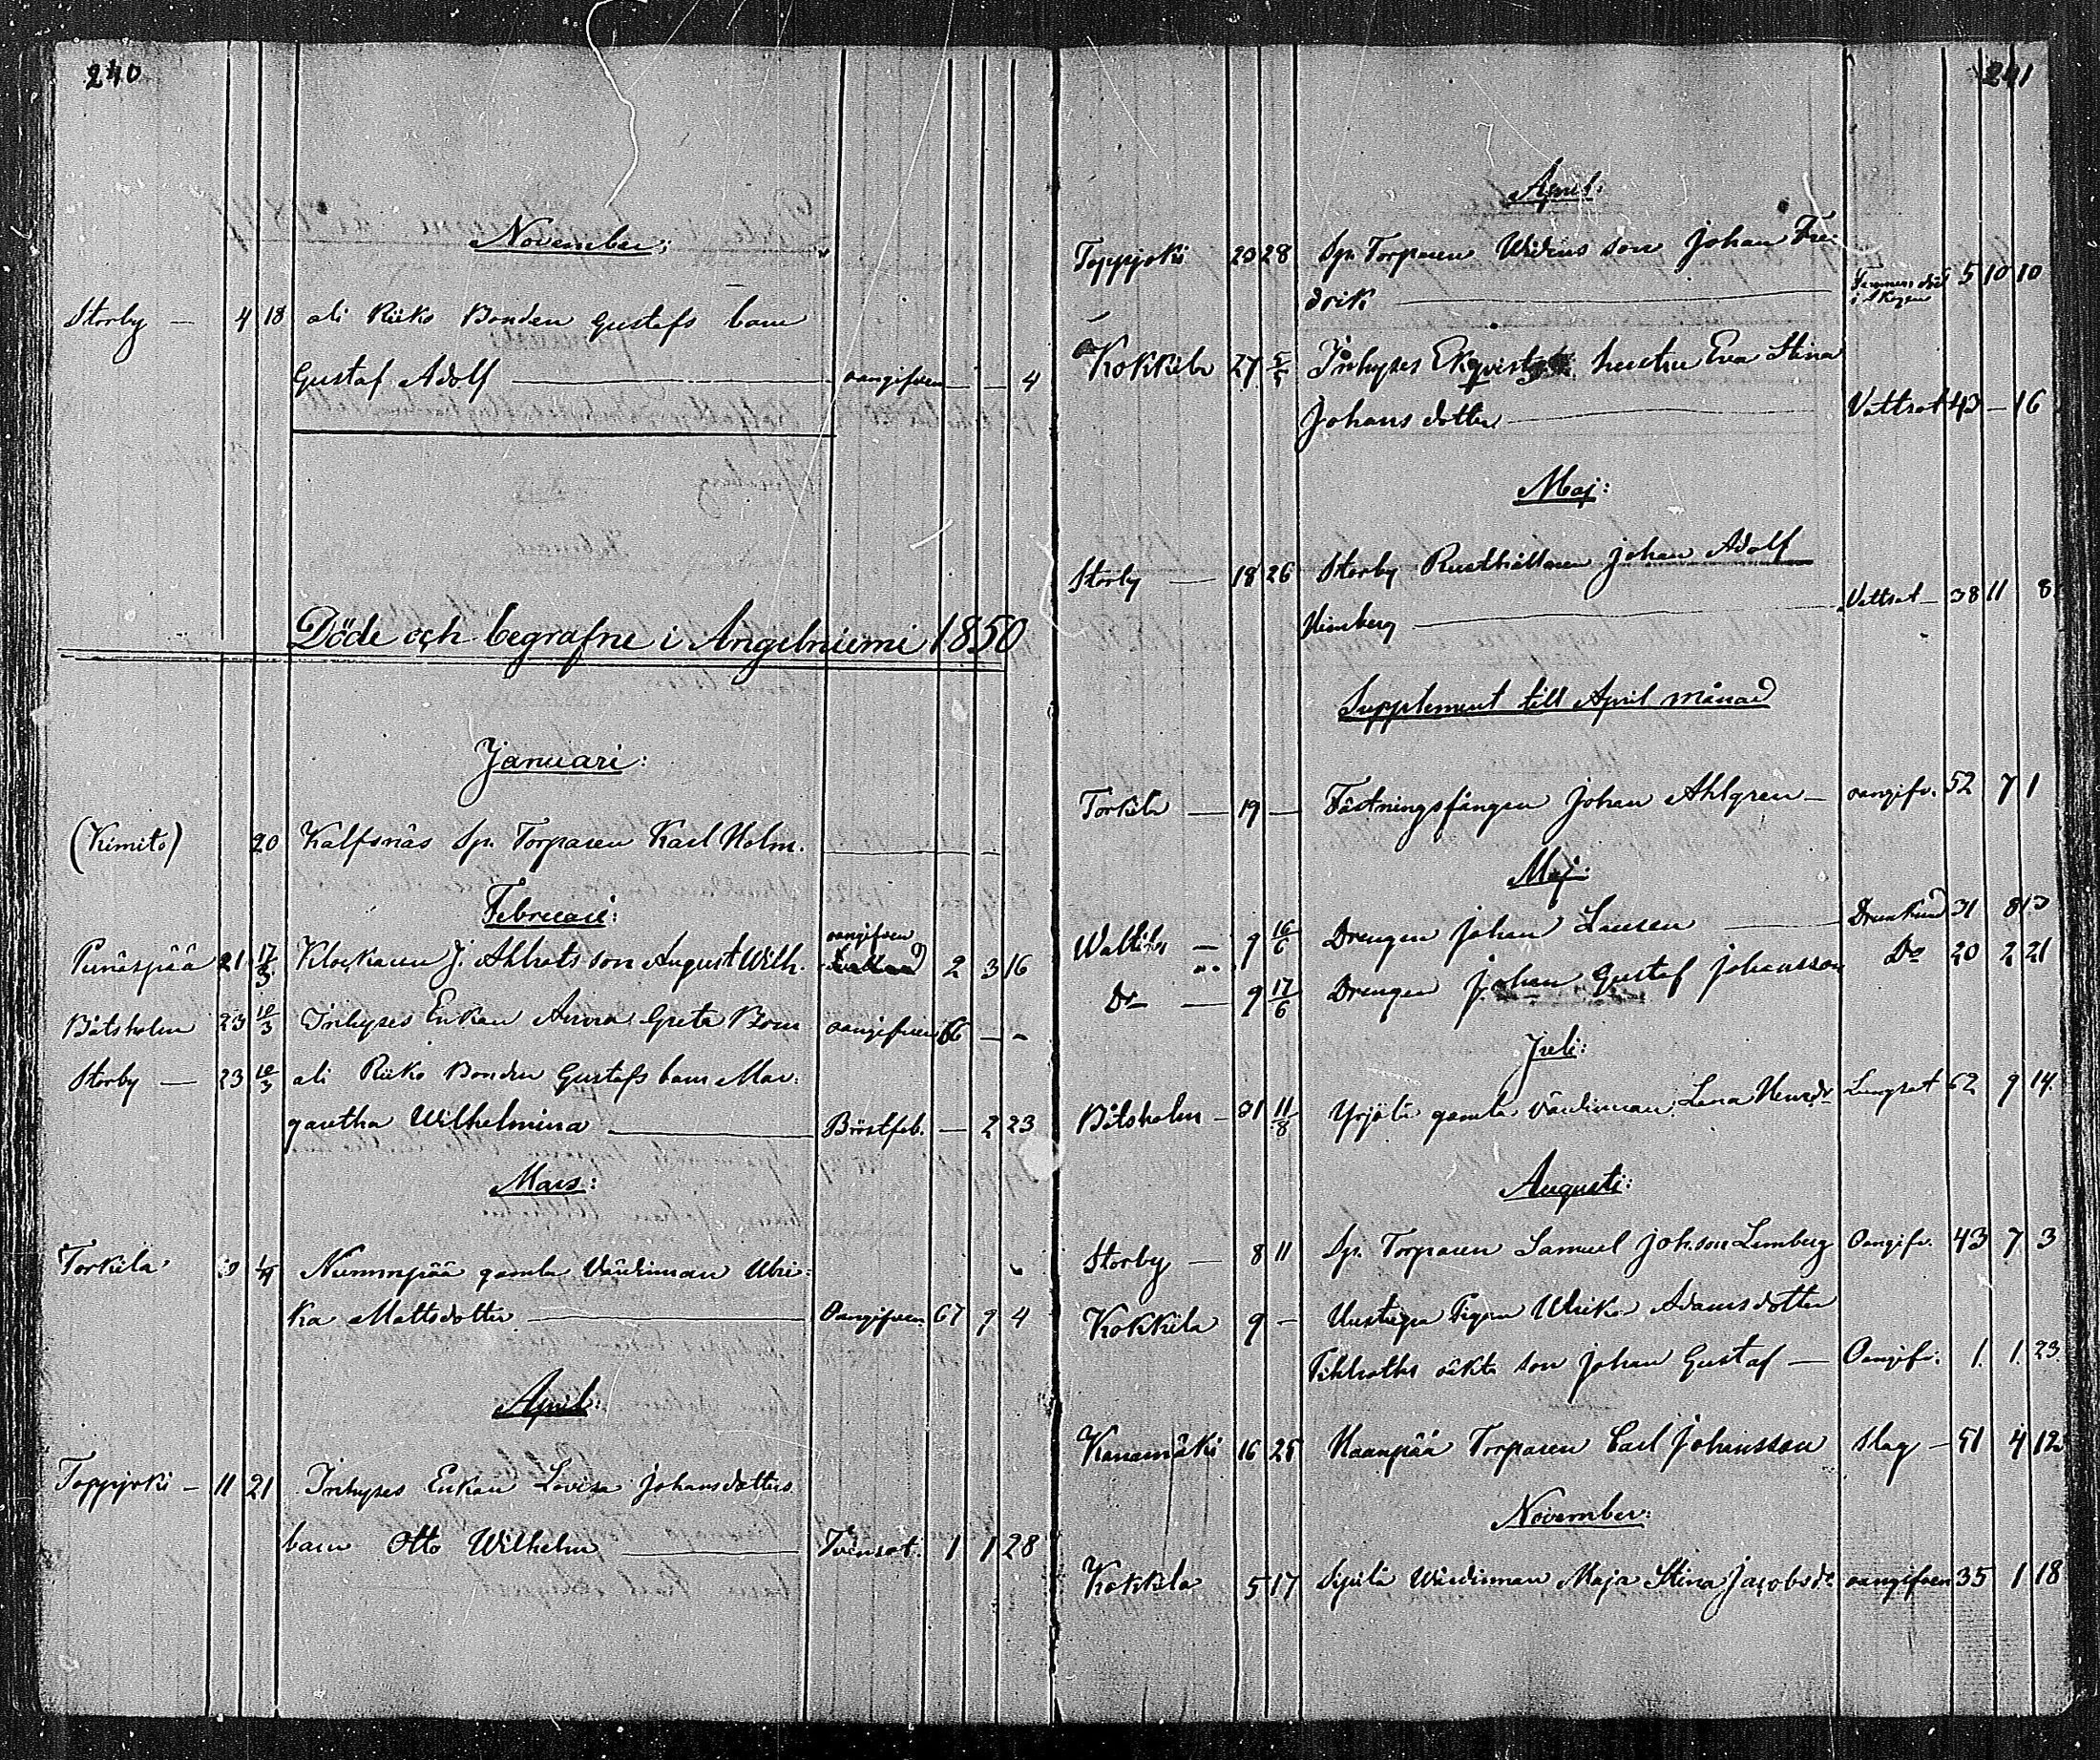 240
November:
Storby — 4 18 ali Riiko Bonden Gustafs barn
Gustaf Adolf — oangifven — — 4
Döde och begrafne i Angelniemi 1850
Januari:
(Kimito) 20 Kalfsnäs Sp. Torparen Karl Holm.
Februari:
Punäspää 21 17/3 Klockaren J. Ahlrots son August Wilh. oangifven 2 3 16
Båtsholm 23 10/3 Inhyses Enkan Anna Greta Bom oangifven 66 — -
Storby — 23 10/3 ali Riiko Bonden Gustafs barn Mar:
garetha Wilhelmina — Bröstfeb. — 2 23
Mars:
Torkila Nummpää gamla Värdinnan Ulri:
ka Mattsdotter — Oangifven 67 9 4
April:
Toppjoki — 11 21 Inhyses Enkan Lovisa Johansdotters
barn Otto Wilhelm — Tvinsot. 1 1 28
241
April:
Toppjoki 23 28 Sp. Torparen Widéns son Johan Fre:
drik — i Skogen 5 10 10
Kokkila 27 Inhyses Ekqvists hustru Eva Stina
Johansdotter — Vattsot 43 — 16
Maj:
Storby — 18 26 Storby Rusthållaren Johan Adolf
Heinberg — Vattsot — 38 11 8
Supplement till April månad
Torkila — 19 — Fästningsfången Johan Ahlgren — oangifv. 52 7 1
Maj:
Waltila — 9 16/6 Drengen Johan — Drunknad 31 8 13
Do — 9 17/6 Drengen Johan Gustaf Johansson Do 20 2 21
Juli:
Båtsholm — 31 11/8 Yrjölä gamla värdinnan Lena Henrdr Lungsot 62 9 14.
Augusti:
Storby — 8 11 Sp. Torparen Samuel Johsson Lemberg Oangifv. 43 7 3
Kokkila 9 — Pigan Ulrika Adamsdotter
oäkta son Johan Gustaf — Oangifv. 1. 1. 23.
Kanamäki 16 25 Haanpää Torparen Carl Johansson Slag — 51 4 12
November:
Kokkila 5 17 Sipilä Wärdinnan Maja Stina Jacobsdr oangifven 35 1 18